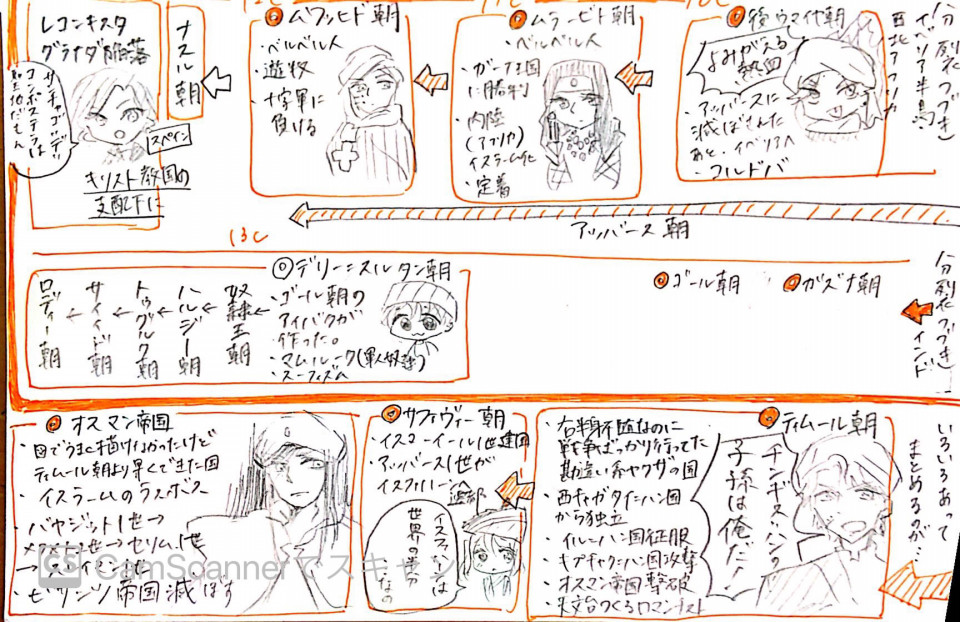 12C
11C
10C
分裂(つづき)
イベリア半島・
西北アフリカ
◎後ウマイヤ朝
よみがえる
熱血
・アッバースに
滅ぼされた
あと、イベリアへ
・コルドバ
◎ムラービト朝
・ベルベル人
・ガーナ王国
に勝利
・内陸
(アフリカ)
イスラーム化
・定着
◎ムワッヒド朝
・ベルベル人
・遊牧
・十字軍に
負ける
ナスル朝
レコンキスタ
グラナダ陥落
サンチャゴ=デ=
コンポステラは
スペイン
キリスト教国の
支配下に
アッバース朝
13C
分裂(つづき)
インド
◎ガズナ朝
◎ゴール朝
◎デリー=スルタン朝
・ゴール朝の
アイバクが
作った。
・マムルーク(軍人奴隷)
・スーフィズム
奴隷王朝
←ハルジー朝
←トゥグルク朝
←サイイド朝
←ロディー朝
いろいろあって
まとめるのが…
◎ティムール朝
チンギス=ハンの
子孫は俺だ!
・右半身不随なのに
戦争ばっかり行ってた
勘違い系ヤクザの国
・西チャガタイ=ハン国
から独立
・イル=ハン国征服
・キプチャク=ハン国攻撃
・オスマン帝国撃破
・天文台つくるロマンチスト
◎サファヴィー朝
・イスマーイール1世建国
・アッバース1世が
イスファハーンへ
遷都
イスファハーンは
世界の半分
なの
◎オスマン帝国
・図でうまく描けなかったけど
ティムール朝より早くできた国
・イスラームのラスボス
・バヤジット1世→
メフメト2世→セリム1世
→スレイマン1世
・ビザンツ帝国滅ぼす
CS CamScannerでスキャン